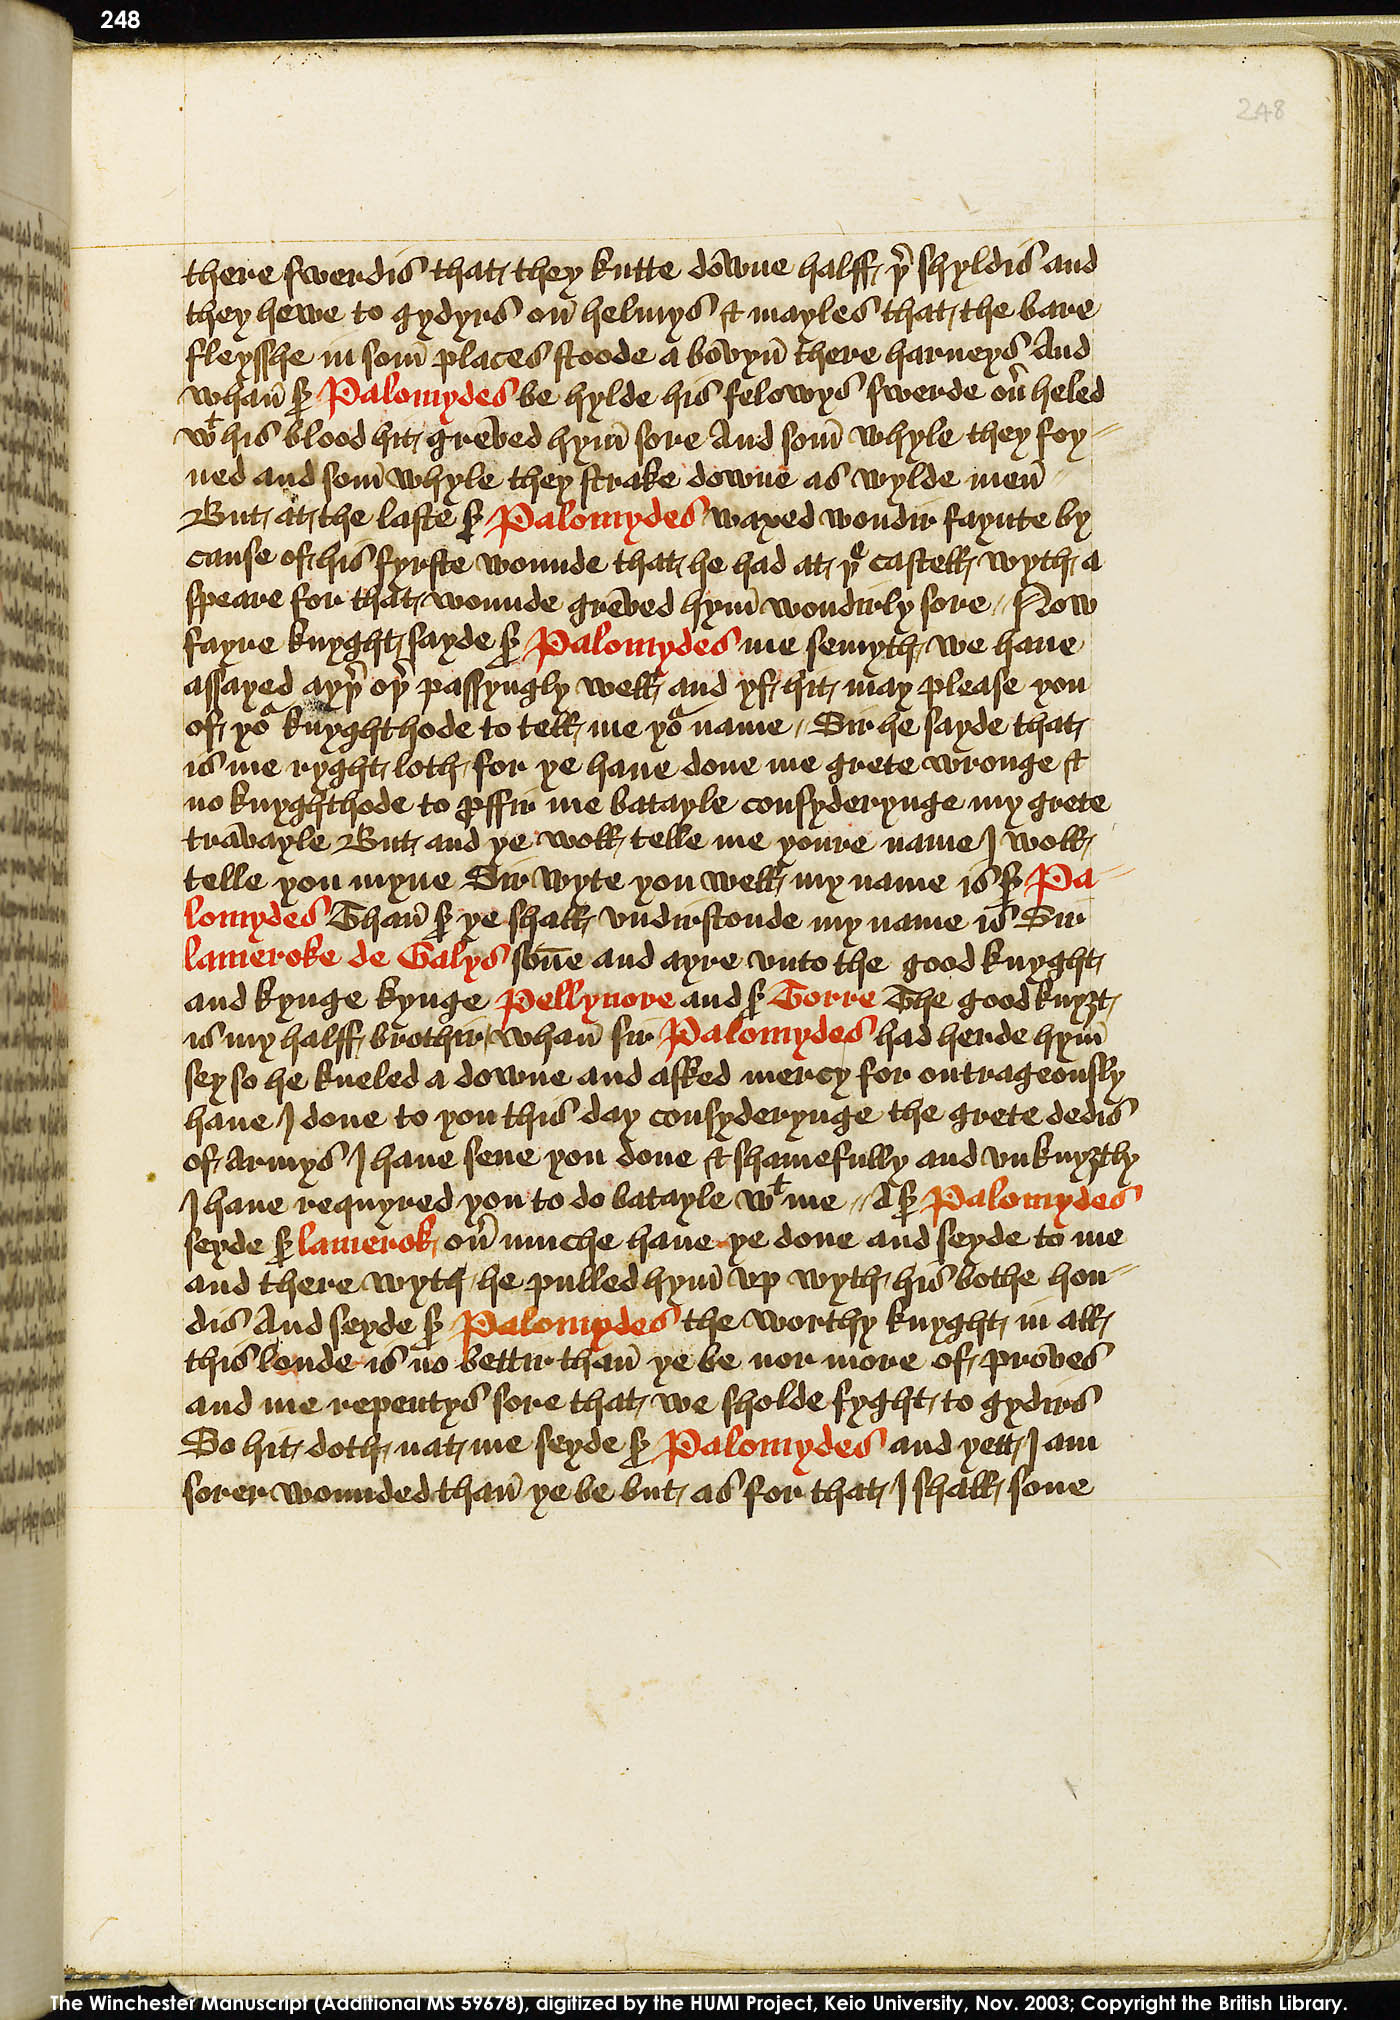 248
248
there swerdis that they kutte downe halff þr shyldis and
they hewe to gydyrs oū helmys & mayles that the bare
fleysshe in som̄ places stoode a bovyn̄ there harneys And
whan̄ sr Palomydes be hylde his felowys swerde ou̾ heled
wt his blood hit greved hym̄ sore And som̄ whyle they foy=
ned and som̄ whyle they strake downe as wylde men̄
But at the laste sr Palomydes waxed wondir faynte by
cause of his fyrste wounde that he had at þe castell wyth a
speare for that wounde greved hym̄ wondirly sore // Now
fayre knyght sayde sr Palomydes me semyth we haue
assayed ayþr oþr passyngly well and yf hit may please you
of yor knyghthode to tell me yor name / Sir he sayde that
is me ryght loth for ye haue done me grete wronge &
no knyghthode to ꝓffir me batayle consyderynge my grete
travayle But and ye woll telle me youre name I woll
telle you myne Sir wyte you well my name is sr Pa=
lomydes Than̄ sr ye shall vndirstonde my name is Sir
lameroke de Galys son̄e and ayre vnto the good knyght
and kynge kynge Pellynore and sr Torre The good knyȝt
is my halff brothir / whan̄ sir Palomydes had herde hym̄
sey so he kneled a downe and asked mercy for outrageously
haue I done to you this day consyderynge the grete dedis
of Armys I haue sene you done & shamefully and vnknyȝtly
I haue requyred you to do batayle wt me // A sr Palomydes
seyde sr lamerok ou̾ muche haue ye done and seyde to me
and there wyth he pulled hym̄ vp wyth his bothe hon=
dis And seyde sr Palomydes the worthy knyght in all
this londe is no bettir than̄ ye be nor more of proves
and me repentys sore that we sholde fyght to gydirs
So hit doth nat me seyde sr Palomydes and yett I am
sorer wounded than̄ ye be but as for that I shall sone
The Winchester Manuscript (Additional MS 59678), digitized by the HUMI Project, Keio University, Nov. 2003; Copyright the British Library.